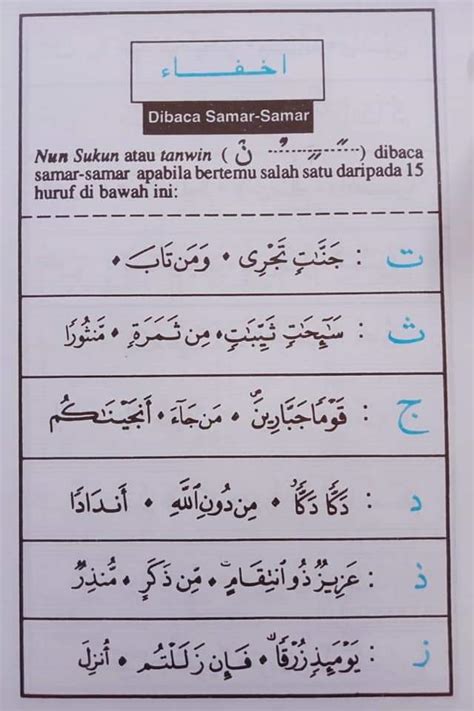 اخفاء
Dibaca Samar-Samar
Nun Sukun atau tanwin ( نْ ــًـ ــٍـ ــٌـ ) dibaca
samar-samar apabila bertemu salah satu daripada 15
huruf di bawah ini:
ت : جَنَّٰتٍ تَجْرِى • وَمَن تَابَ •
ث : سَٰٓئِحَٰتٍ ثَيِّبَٰتٍ • مِن ثَمَرَةٍ • مَّنثُورًا
ج : قَوْمًا جَبَّارِينَ • مَن جَآءَ • أَنجَيْنَٰكُم
د : دَكًّا دَكًّا • مِن دُونِ ٱللَّهِ • أَندَادًا
ذ : عَزِيزٌ ذُو ٱنتِقَامٍ • مِّن ذَكَرٍ • مُّنذِرٌ
ز : يَوْمَئِذٍ زُرْقًا • فَإِن زَلَلْتُم • أُنزِلَ